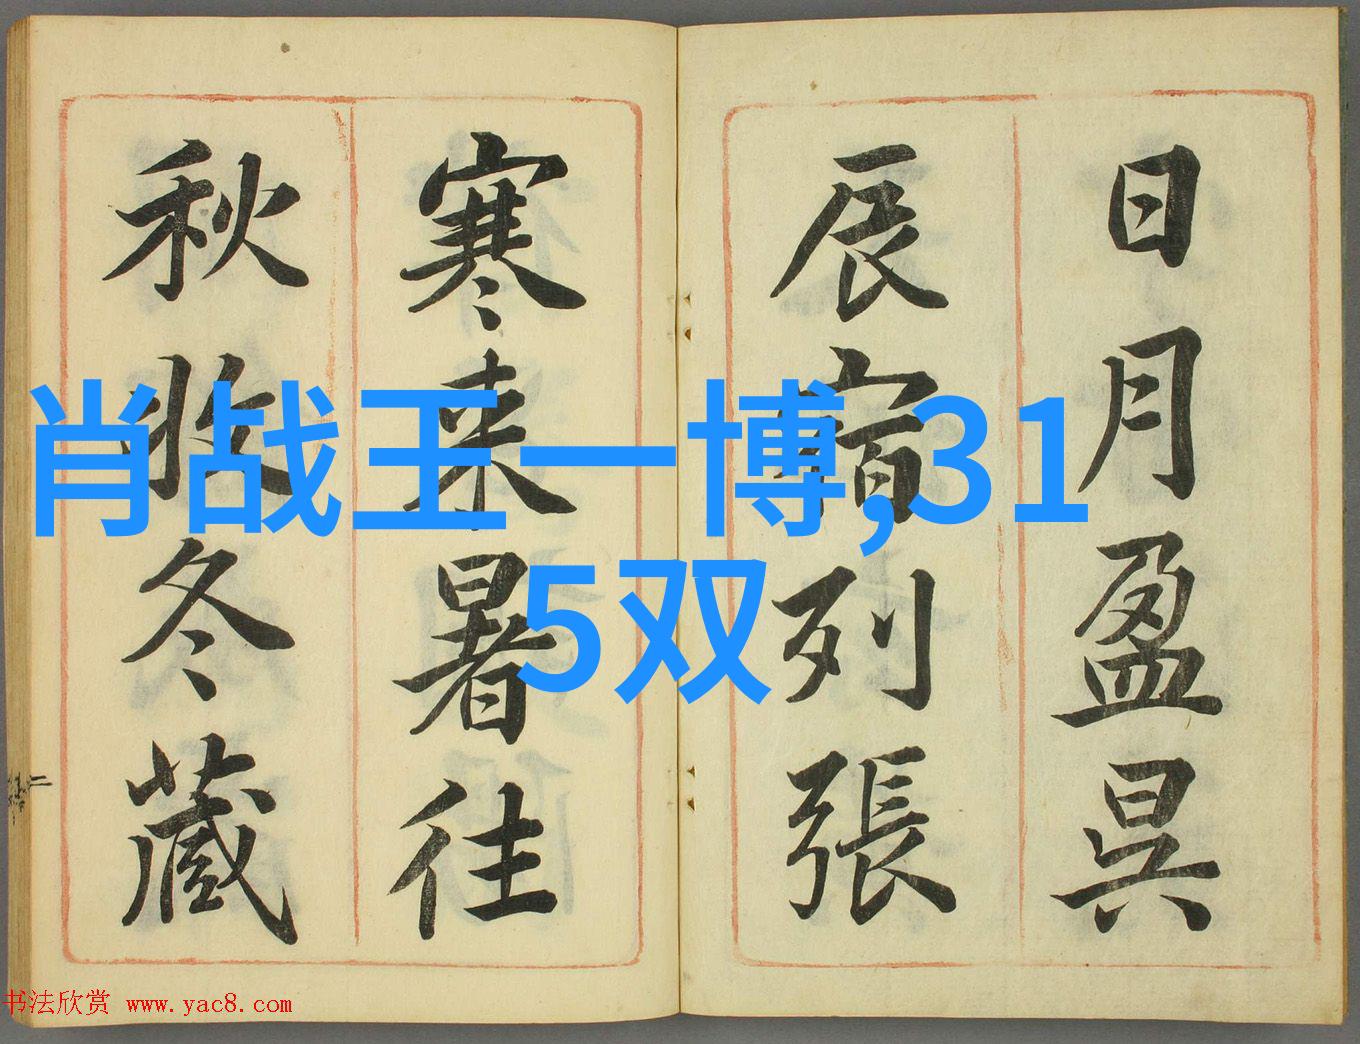 日月盈昃
辰宿列張
寒来暑往
秋收冬藏
肖战王一博,31
5双
书法欣赏 www.yac8.com